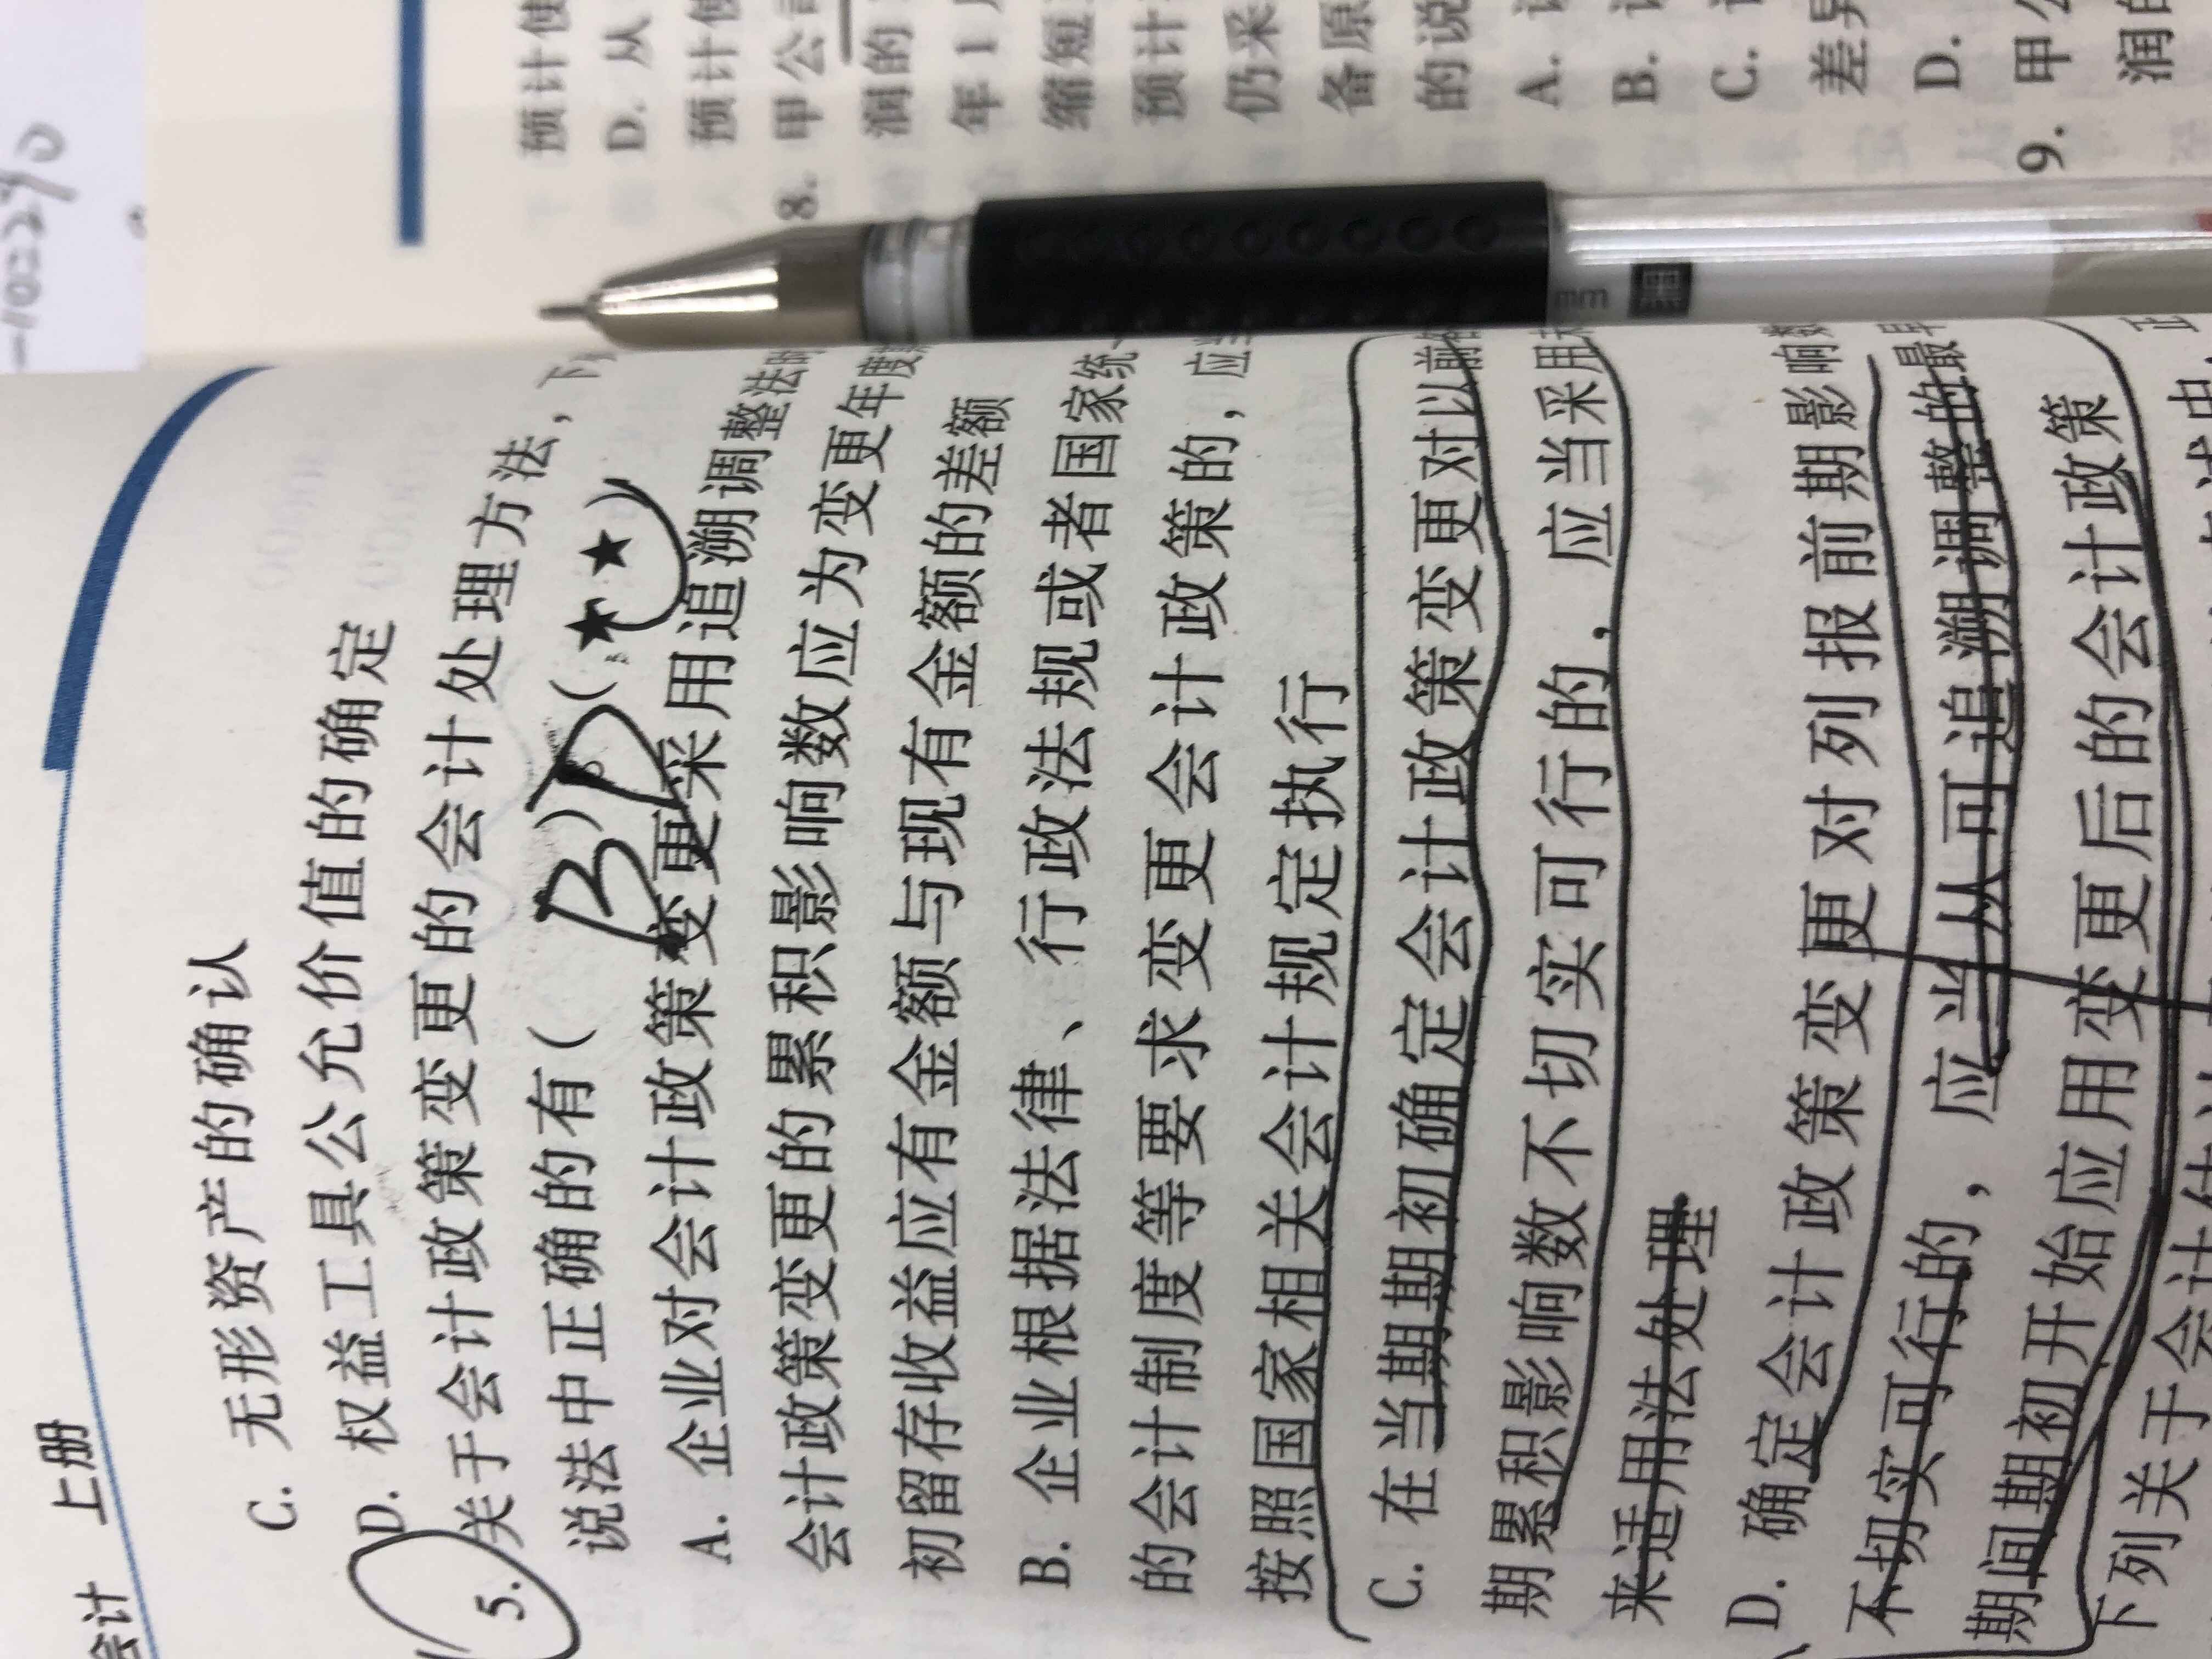 会计 上册
C. 无形资产的确认
D. 权益工具公允价值的确定
5. 关于会计政策变更的会计处理方法，下
说法中正确的有（ ）（★★）
BD
C
A. 企业对会计政策变更采用追溯调整法时
会计政策变更的累积影响数应为变更年度
初留存收益应有金额与现有金额的差额
B. 企业根据法律、行政法规或者国家统
的会计制度等要求变更会计政策的，应
按照国家相关会计规定执行
C. 在当期期初确定会计政策变更对以前
期累积影响数不切实可行的，应当采用
来适用法处理
D. 确定会计政策变更对列报前期影响
不切实可行的，应当从可追溯调整的最
期间期初开始应用变更后的会计政策
下列关于会计
预计使
D. 从
预计使
8. 甲公司
润的
年1
缩短
预计
仍采
备原
的说
A.
B.
C.
差异
D.
9. 甲公
润的
mm